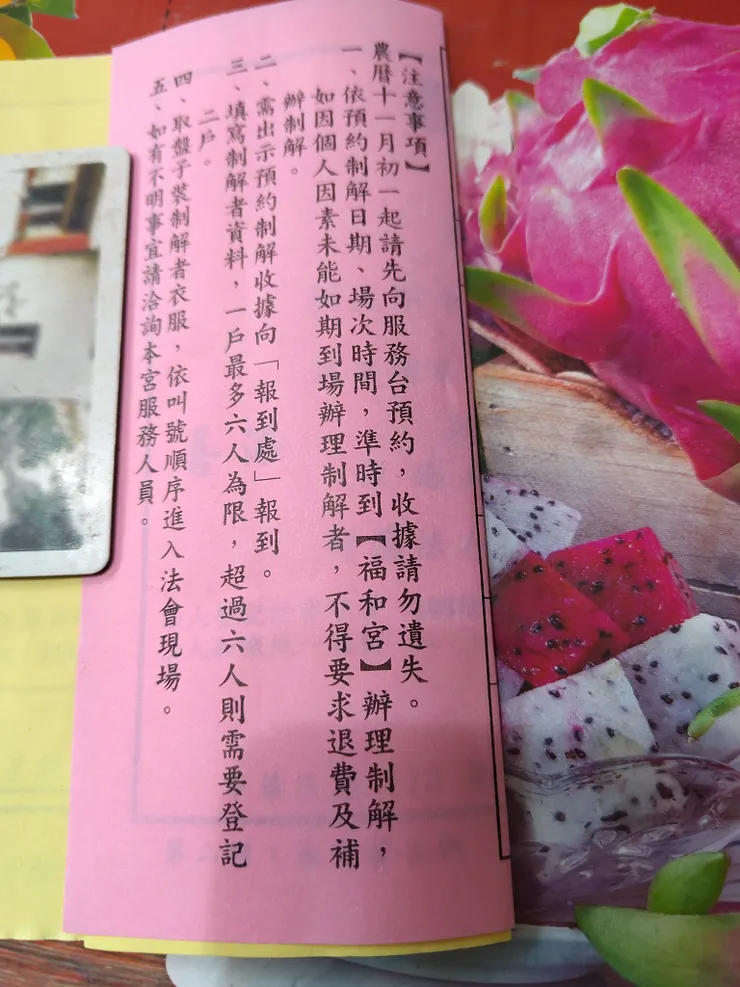 【注意事項】
農曆十一月初一起請先向服務台預約，收據請勿遺失。
一、依預約制解日期、場次時間，準時到【福和宮】辦理制解，
如因個人因素未能如期到場辦理制解者，不得要求退費及補
辦制解。
二、需出示預約制解收據向「報到處」報到。
三、填寫制解者資料，一戶最多六人為限，超過六人則需要登記
二戶。
四、取盤子裝制解者衣服，依叫號順序進入法會現場。
五、如有不明事宜請洽詢本宮服務人員。